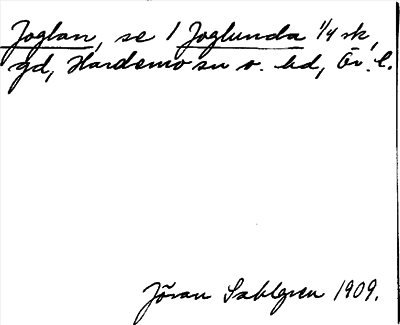 Joglan, se 1 Joglunda 1/4 sk,
gd, Hardemo sn o. hd, Ör. l.
Jöran Sahlgren 1909.